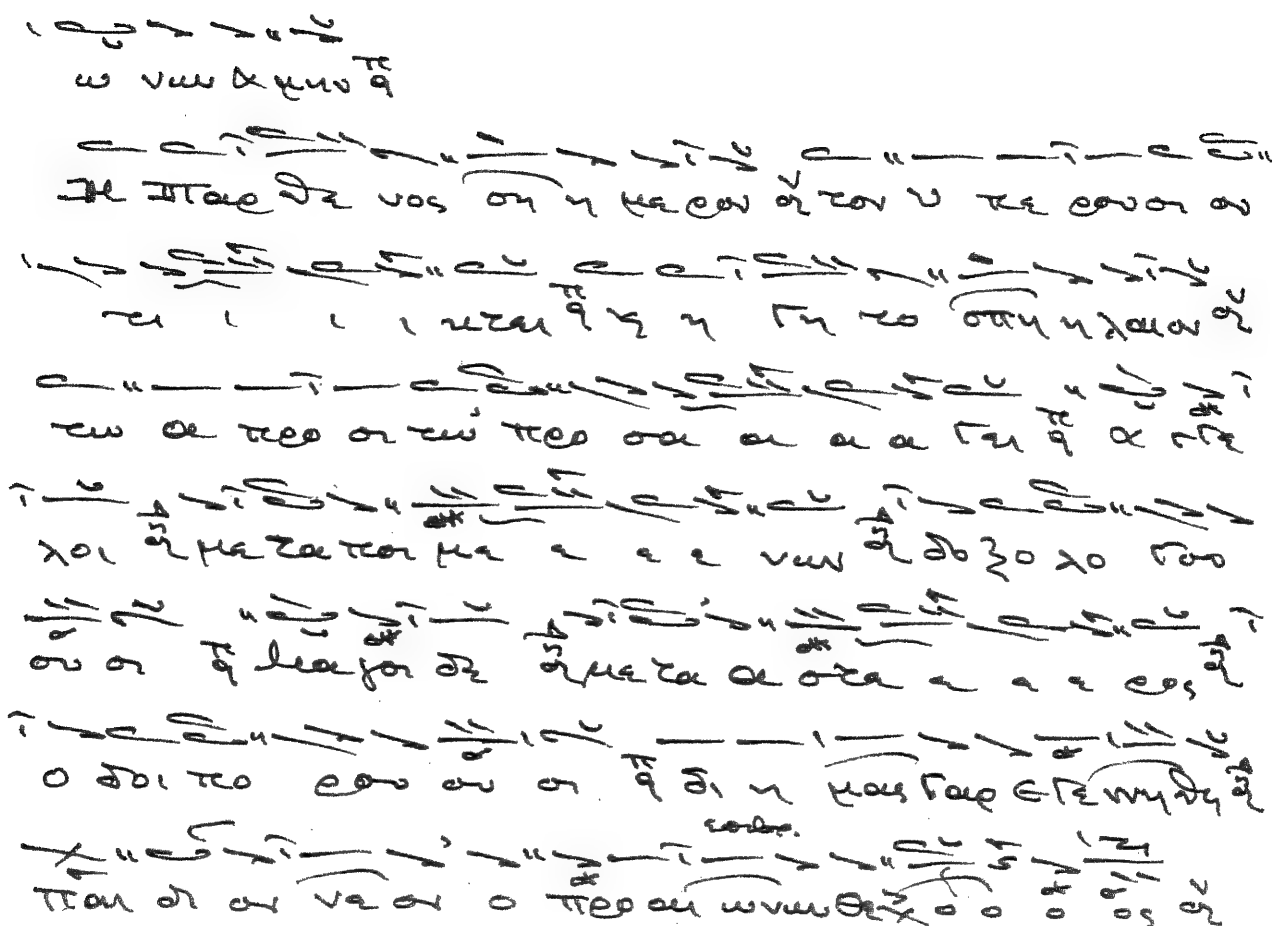 ω νων Α μην
Η Παρ θε νος ση η με ρον τον υ πε ρου σι ον
τι ι ι ι κται κ η Γη το σπη η λαι ον
τω α προ σι τω προ σα α α α γει Α γγε
λοι με τα ποι με ε ε ε νων δο ξο λο γου
ου σι Μα γοι δε με τα α στε ε ε ε ρος
ο δοι πο ρου ου σι δι η μας γαρ ε γε ννη θη
παι δι ον νε ον ο προ αι ω νων Θε ο ο ο ος